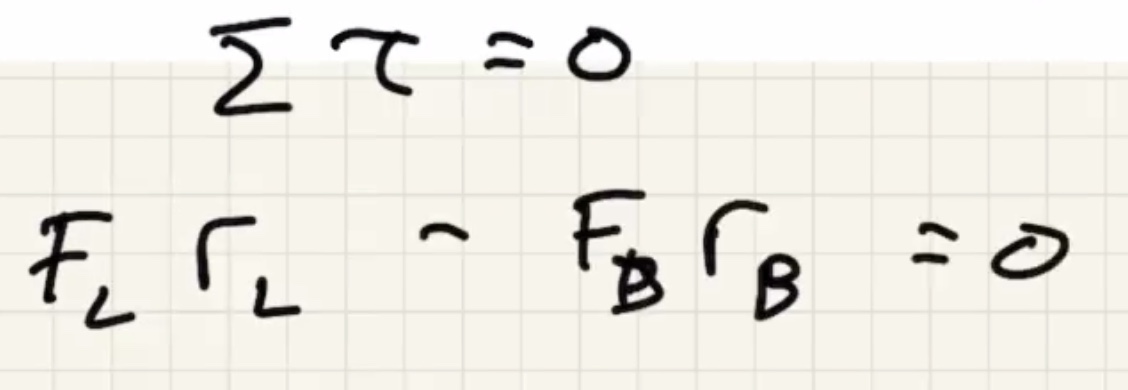 Σ τ = 0
F_L r_L - F_B r_B = 0